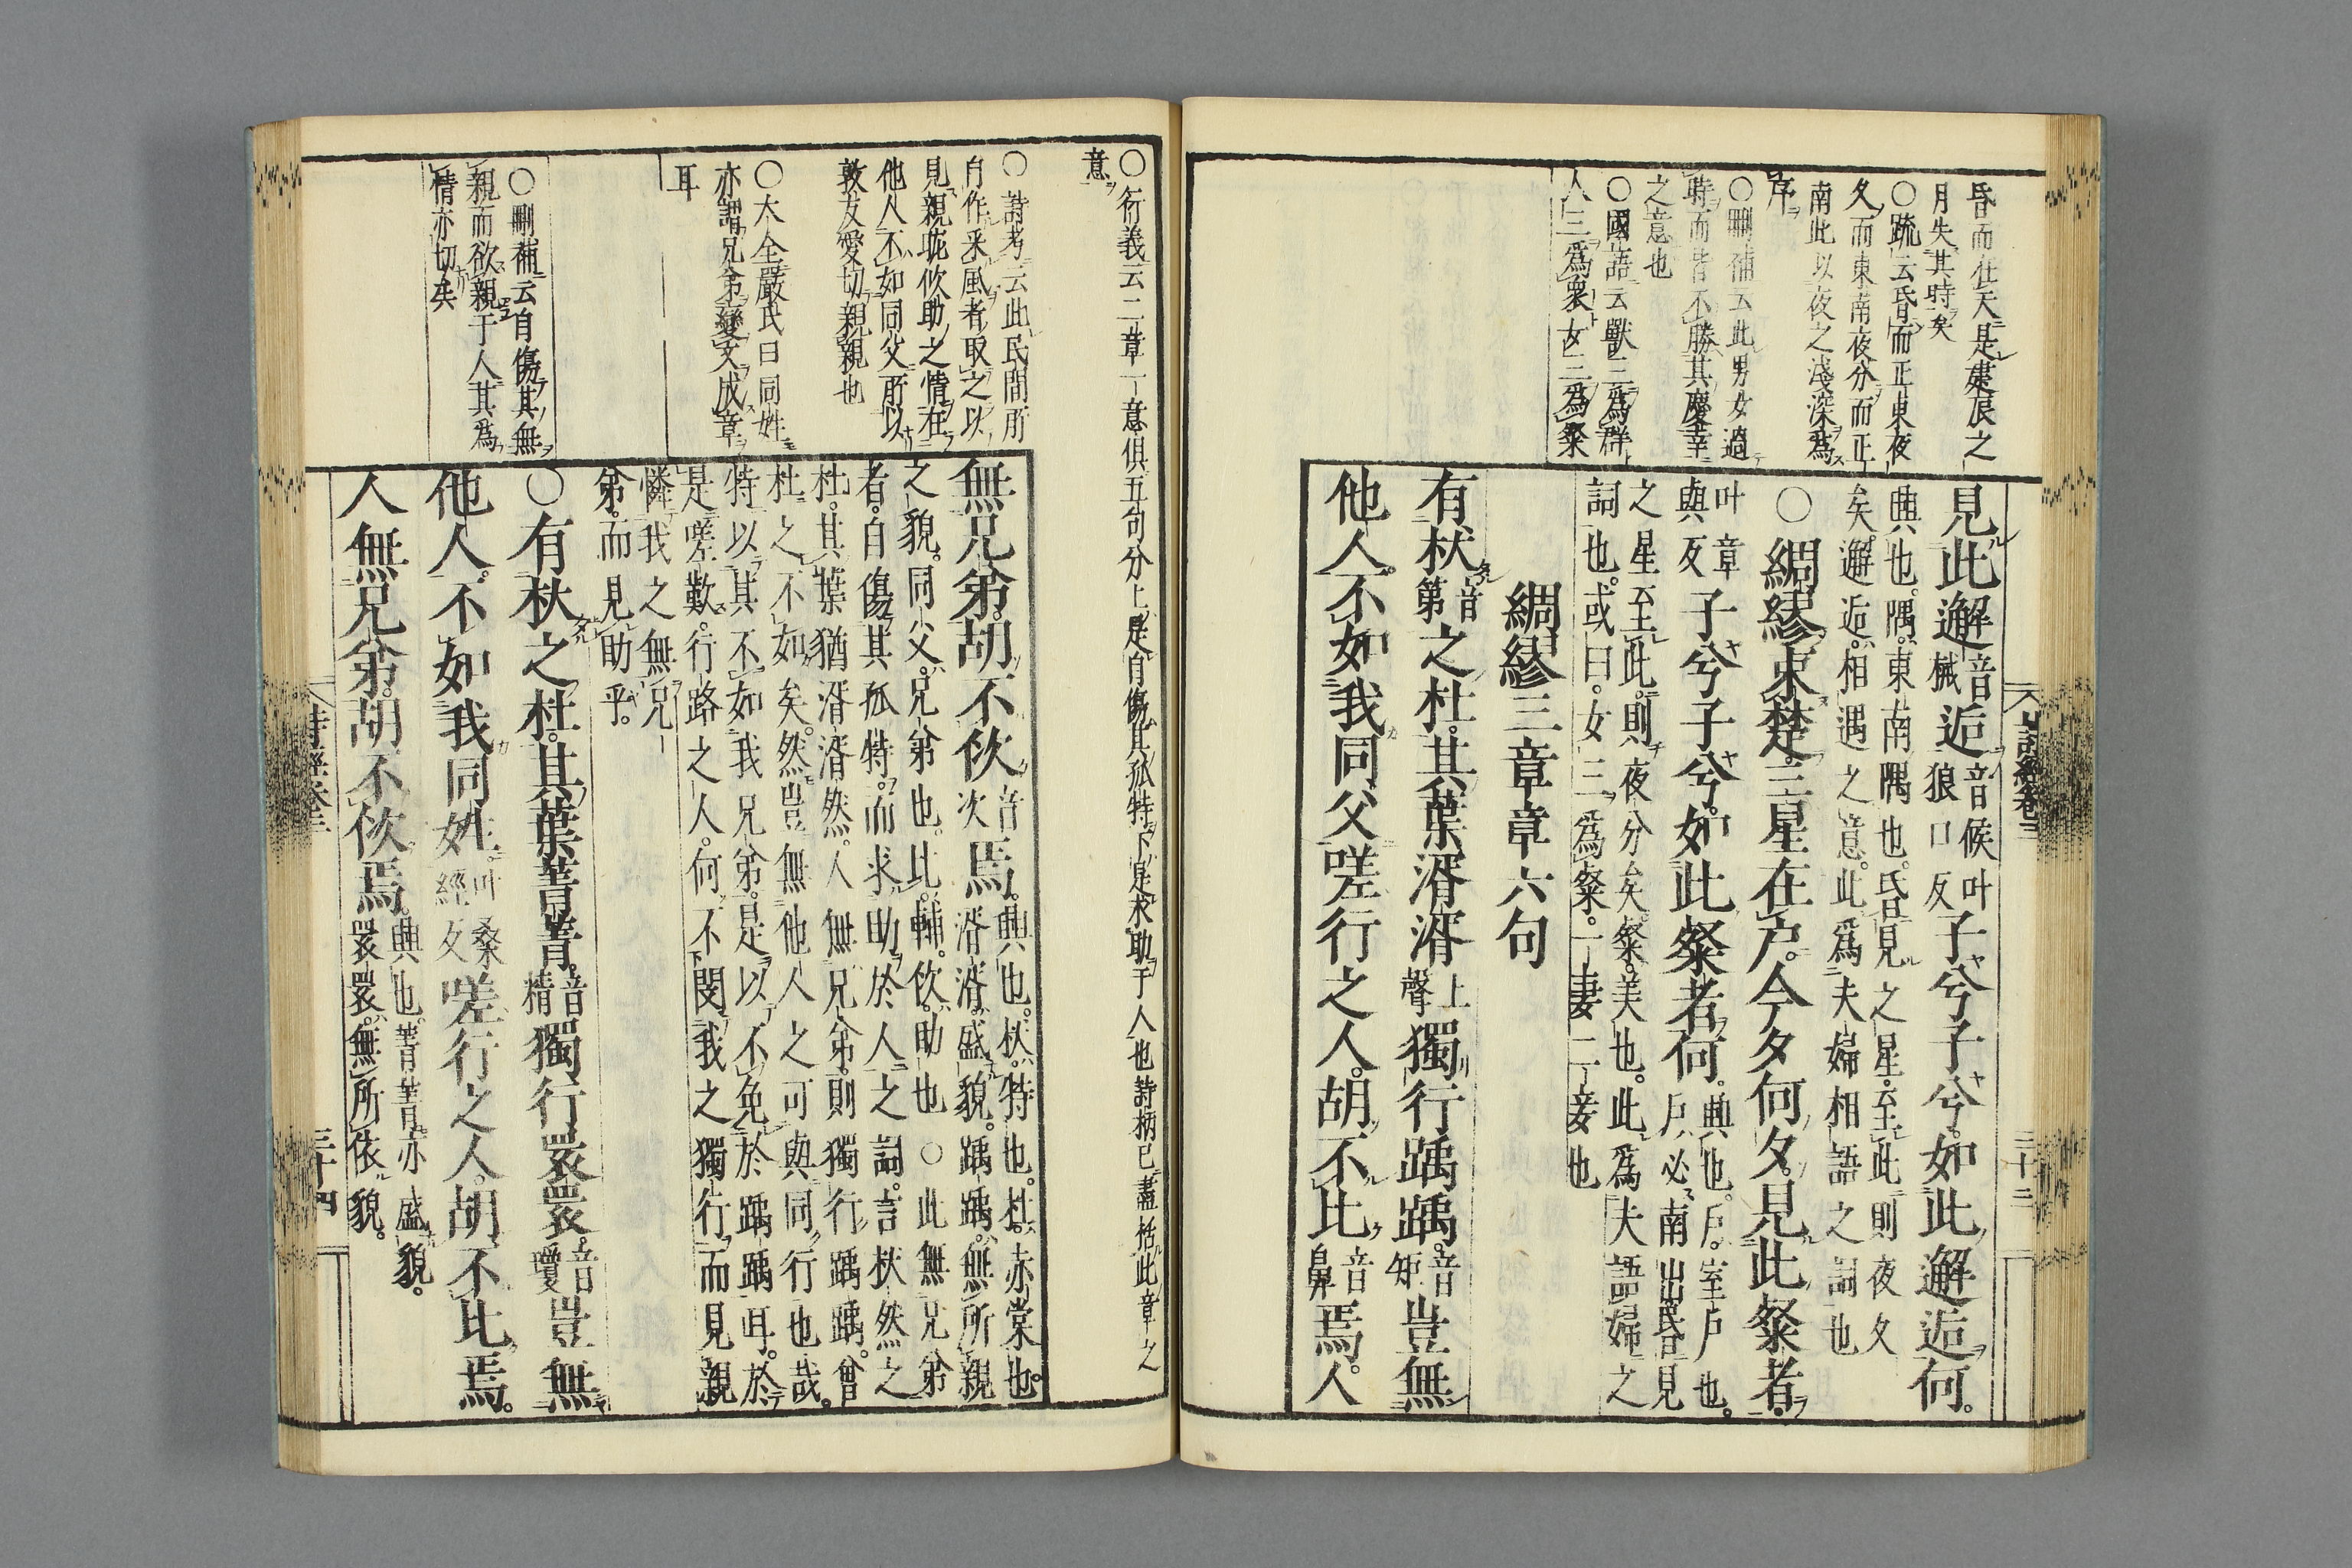 昏而在天是建辰之
月失其時矣
○疏云昏而正東夜
久而東南夜分而正
南此以夜之淺深爲
序
○刪補云此男女過
時而皆不勝其慶幸
之意也
○國語云獸三爲群
人三爲衆女三爲粲
見此邂音械逅音候叶狼口反子兮子兮如此邂逅何。
興也。隅。東南隅也。昏見之星至此則夜久
矣。邂逅。相遇之意。此爲夫婦相語之詞也
○綢繆束楚。三星在戶。今夕何夕。見此粲者。
叶章與反子兮子兮。如此粲者何。興也。戶。室戶也。戶必南出。昏見
之星至此。則夜分矣。粲。美也。此爲夫語婦之
詞也。或曰。女三爲粲。一妻二妾也
綢繆三章章六句
有杕音第之杜。其葉湑湑上聲獨行踽踽。音矩豈無
他人。不如我同父嗟行之人。胡不比音鼻焉。人
詩經卷三
三十三
○衍義云二章一意俱五句分上是自傷其孤特下是求助于人也詩柄已盡括此章之
意
○詩考云此民間所
自作采風者取之以
見親昵佽助之情在
他人不如同父所以
敦友愛切親親也
○大全嚴氏曰同姓
亦謂兄弟變文成章
耳
○刪補云自傷其無
親而欲親于人其爲
情亦切矣
無兄弟。胡不佽音次焉。興也。杕。特也。杜。赤棠也。湑湑。盛貌。踽踽。無所親
之貌。同父。兄弟也。比。輔。佽。助也○此無兄弟
者。自傷其孤特。而求助於人之詞。言杕然之
杜。其葉猶湑湑然。人無兄弟。則獨行踽踽。曾
杜之不如矣。然豈無他人之可與同行也哉。
特以其不如我兄弟。是以不免於踽踽耳。於
是嗟歎。行路之人。何不閔我之獨行而見親
憐我之無兄
弟。而見助乎。
○有杕之杜。其葉菁菁。音精獨行睘睘。音瓊豈無
他人。不如我同姓。叶桑經反嗟行之人。胡不比焉。
人無兄弟。胡不佽焉。興也。菁菁。亦盛貌。睘睘。無所依貌。
詩經卷三
三十四